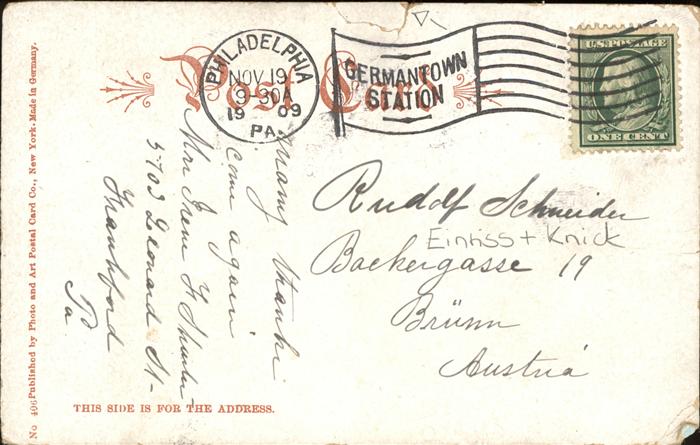 Post Card
PHILADELPHIA
NOV 19
9-30A
19 09
PA.
GERMANTOWN
STATION
U.S. POSTAGE
ONE CENT
Rudolf Schneider
Einriss + Knick
Backergasse 19
Brünn
Austria
many thanks
come again
Mrs Irene F
5703 Leonard St-
Frankford
Pa
THIS SIDE IS FOR THE ADDRESS.
No 406 Published by Photo and Art Postal Card Co., New York. Made in Germany.